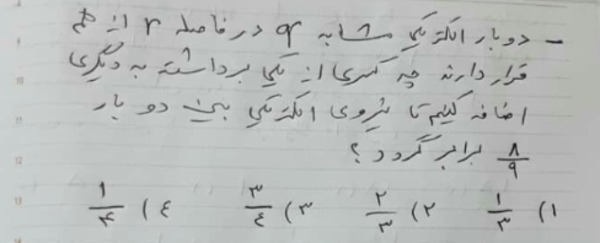 - دو بار الکتریکی مشابه q در فاصله r از هم
قرار دارند چه کسری از یکی برداشته به دیگری
اضافه کنیم تا نیروی الکتریکی بین دو بار
۸/۹ برابر گردد ؟
۱) ۱/۳ ۲) ۲/۳ ۳) ۳/۴ ۴) ۱/۴